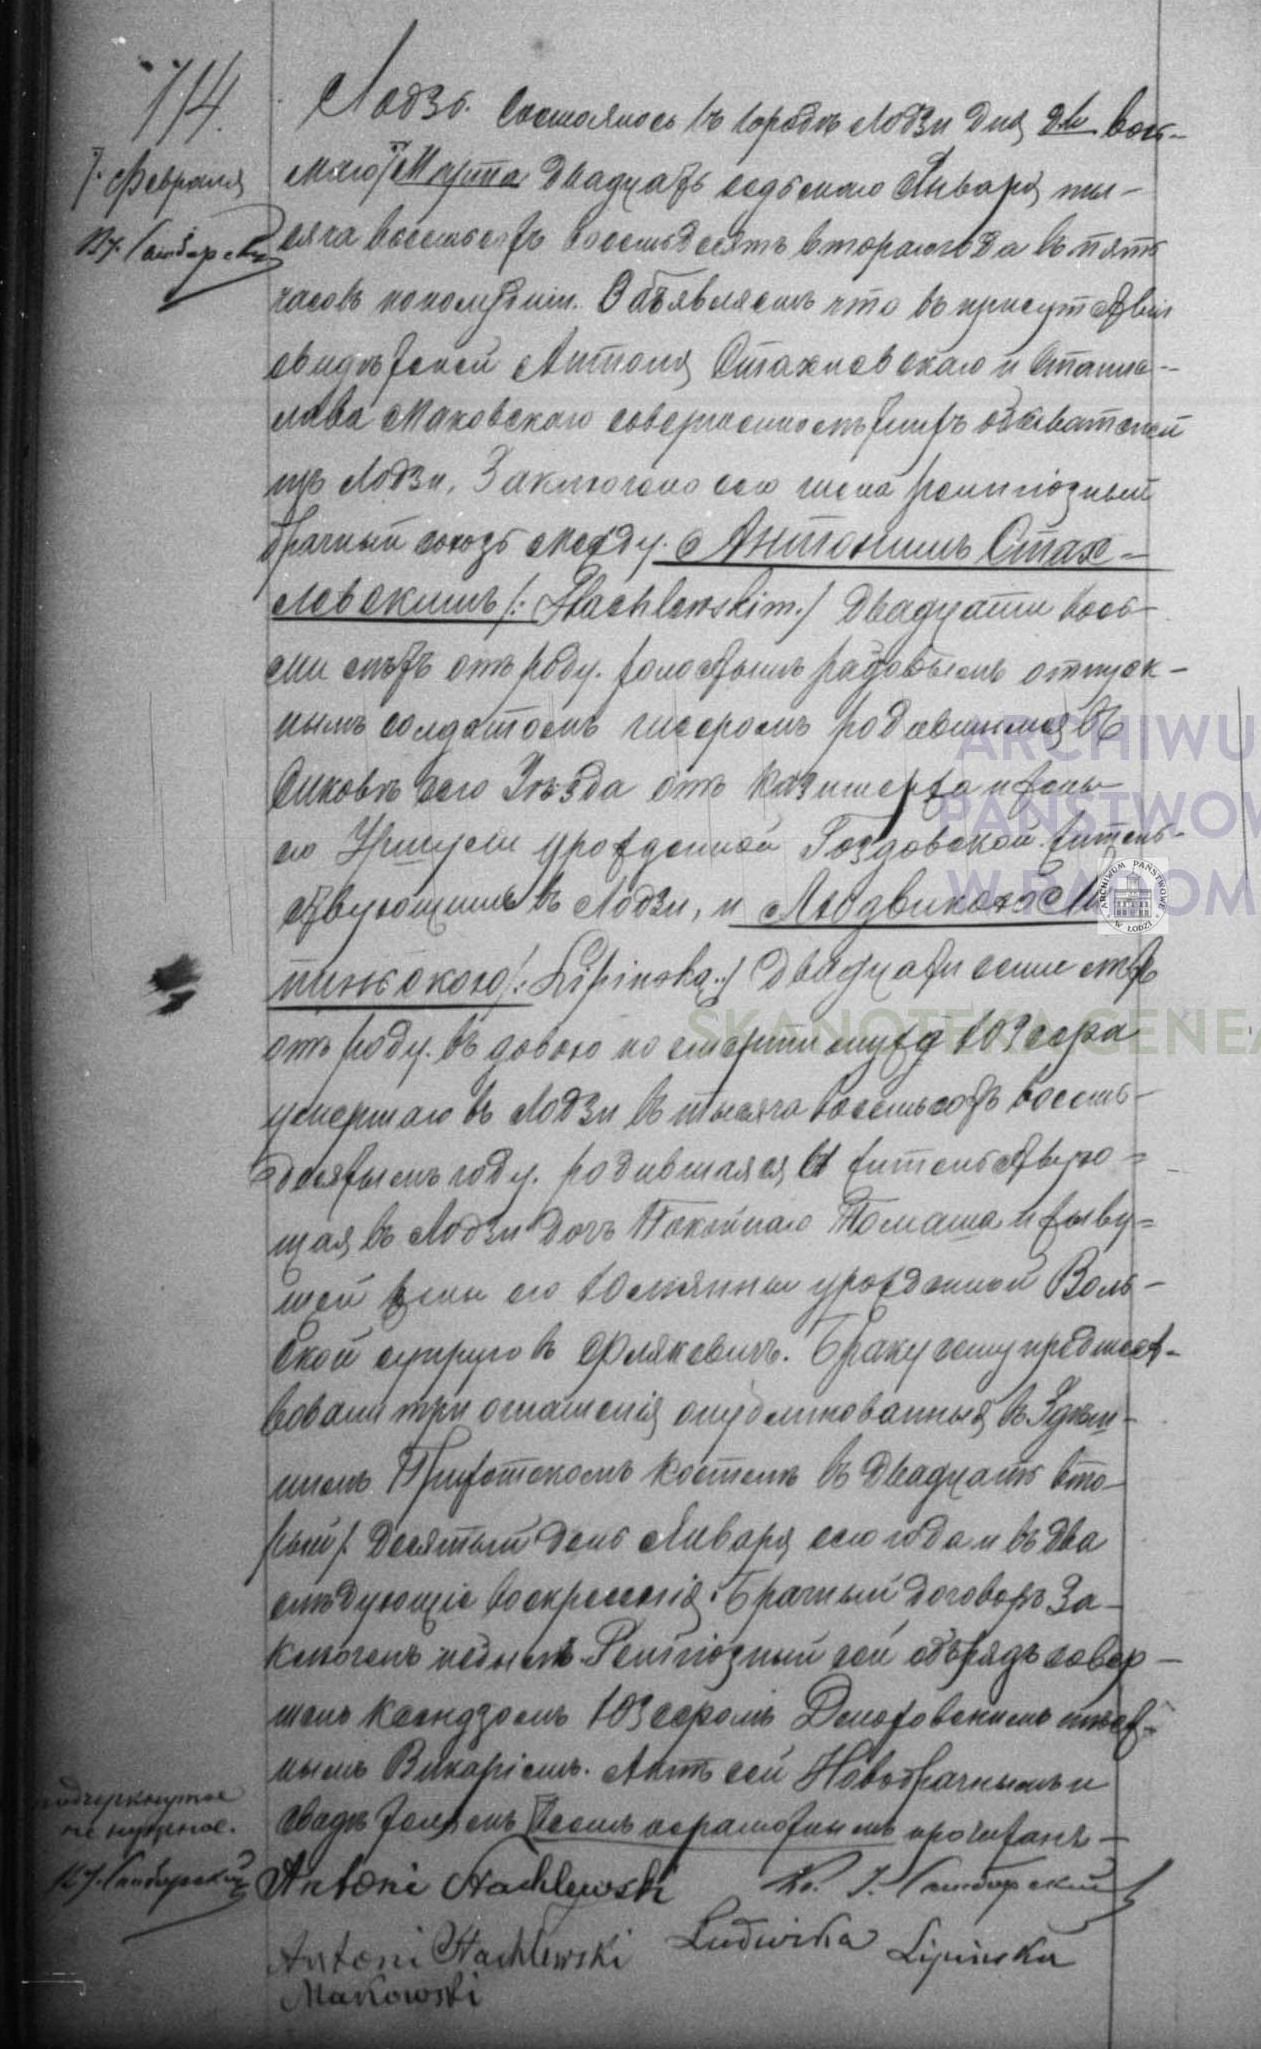 114.
7. Февраля
Кс. Гамбарскій
Лодзь. Состоялось въ городѣ Лодзи дня вось-
маго / Марта двадцать седьмаго Января ты-
сяча восемьсотъ восемьдесятъ втораго года въ пять
часовъ пополудни. Объявляемъ что въ присутствіи
свидѣтелей Антонія Стахлевскаго и Станис-
лава Маковскаго совершеннолѣтнихъ обывателей
изъ Лодзи, Заключено сего числа религіозный
брачный союзъ между: Антонимъ Стах-
левскимъ /: Stachlewskim./ двадцати вось-
ми лѣтъ отъ роду. холостымъ рядовымъ отпуск-
нымъ солдатомъ родившимся въ
сего Уѣзда отъ Казимержа и жены
его Уршули урожденной Гоздовской. житель-
ствующимъ въ Лодзи, и Людвикою Ли-
пинскою /: Lipinską./ двадцати семи лѣтъ
отъ роду. вдовою по смерти мужа Юзефа
умершаго въ Лодзи въ тысяча восемьсотъ восемь-
десятымъ году. родившаяся и жительствую-
щая въ Лодзи дочь Покойнаго Томаша и живу-
щей жены его Юліянны урожденной Воль-
ской супруговъ Фляковичъ. Браку сему предшест-
вовали три оглашенія опубликованныя въ Здѣш-
нимъ Приходскомъ костелѣ въ двадцать вто-
рый / Десятый день Января сего года и въ два
слѣдующіе воскресенія. Брачный договоръ За-
ключенъ небылъ. Религіозный сей обрядъ совер-
шенъ Ксендзомъ Юзефомъ мѣст-
нымъ Викаріемъ. Актъ сей Новобрачнымъ и
Свидѣтелямъ всемъ неграмотнымъ прочитанъ
подчеркнутое
не нужное.
Кс. Гамбарскій
Antoni Stachlewski Кс. І. Гамбарскій
Antoni Stachlewski Ludwika Lipinska
Makowski
ARCHIWU
PAŃSTWOW
W RADOM
ARCHIWUM PAŃSTWOWE W ŁODZI
SKANOTEKA GENEA